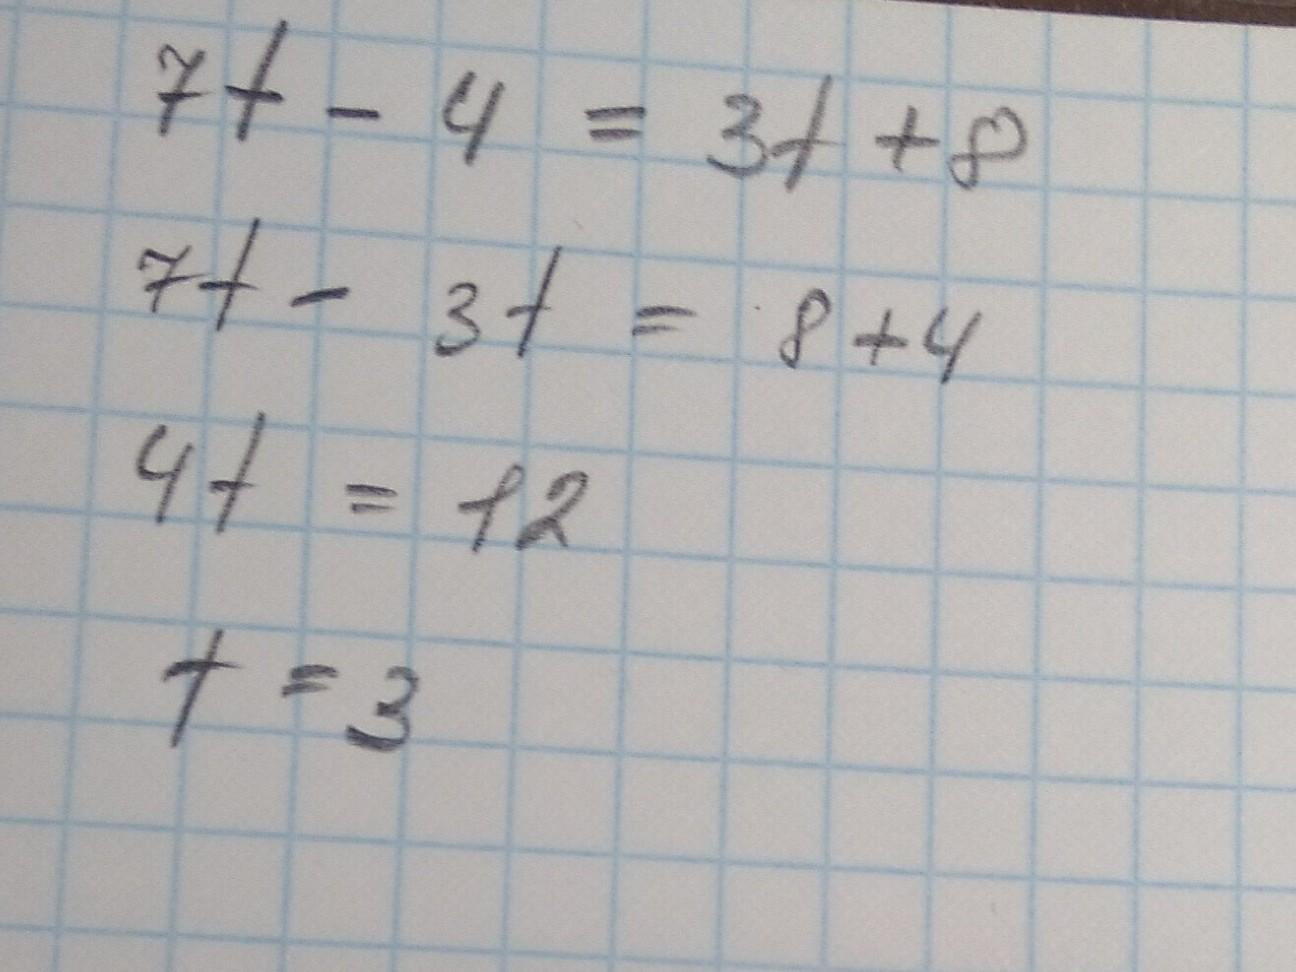 7t - 4 = 3t + 8
7t - 3t = 8 + 4
4t = 12
t = 3